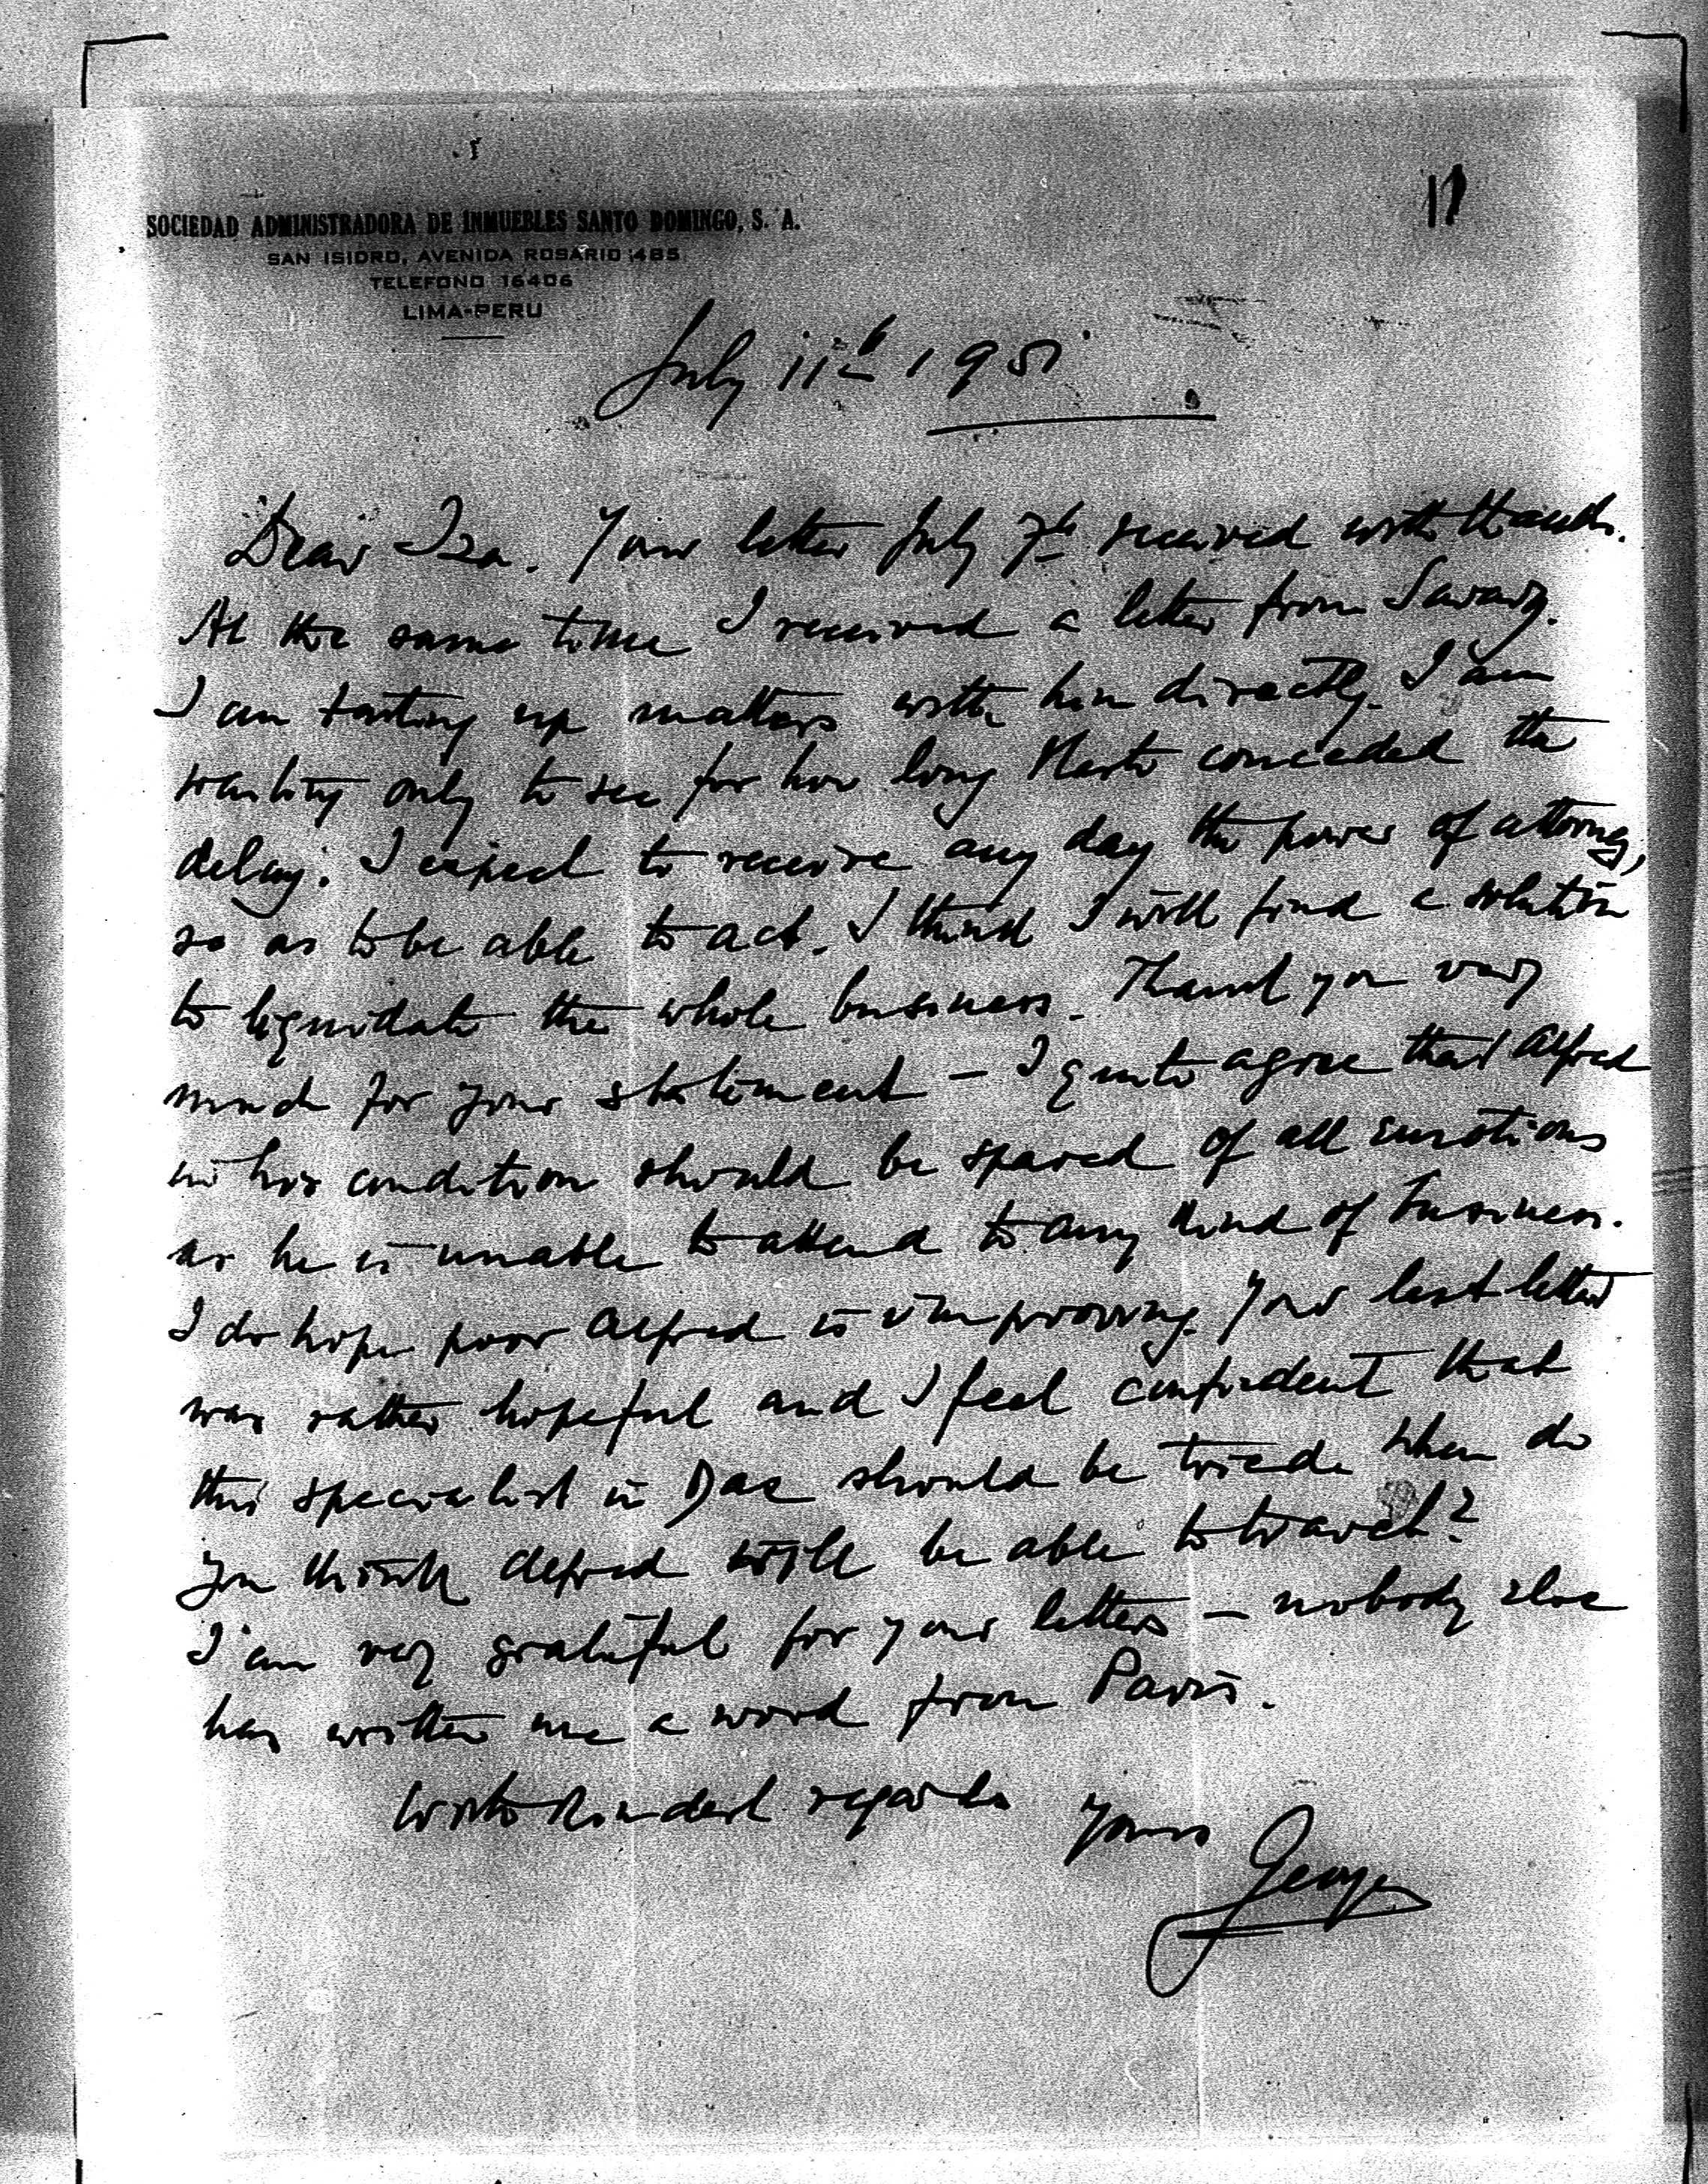 11
SOCIEDAD ADMINISTRADORA DE INMUEBLES SANTO DOMINGO, S. A.
SAN ISIDRO, AVENIDA ROSARIO 485
TELEFONO 16406
LIMA-PERU
July 11th 1951
Dear Iza. Your letter July 7th received with thanks.
At the same time I received a letter from
I am taking up matters with him directly. I am
waiting only to see for how long conceded the
delay. I expect to receive any day the power of attorney,
so as to be able to act. I think I will find a solution
to liquidate the whole business. Thank you very
much for your statement – I quite agree that Alfred
in his condition should be spared of all emotions
as he is unable to attend to any kind of business.
I do hope poor Alfred is improoving. Your last letter
was rather hopeful and I feel confident that
this specialist in should be tried. When do
you think Alfred will be able to travel?
I am very grateful for your letters – nobody else
has written me a word from Paris.
With kindest regards yours
George